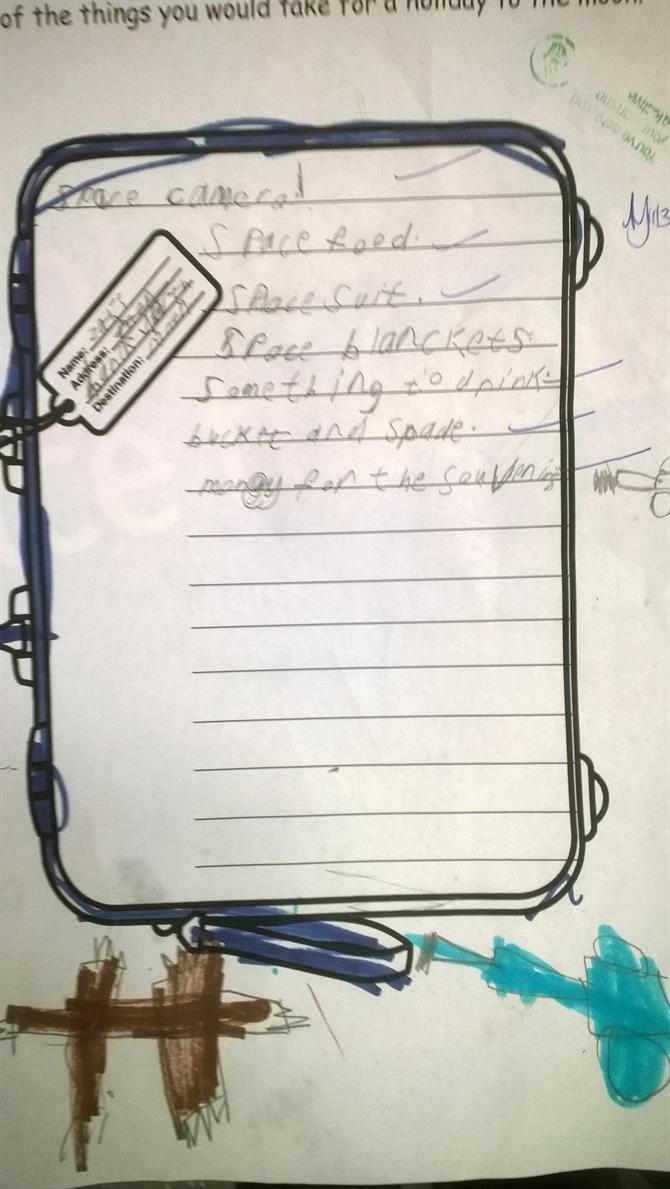 of the things you would take for a holiday to the moon.
You've been using your
space camera!
Space food.
Space suit.
Space blanckets.
Name:
Address:
Destination:
Something to drink.
bucket and spade.
for the souvenis